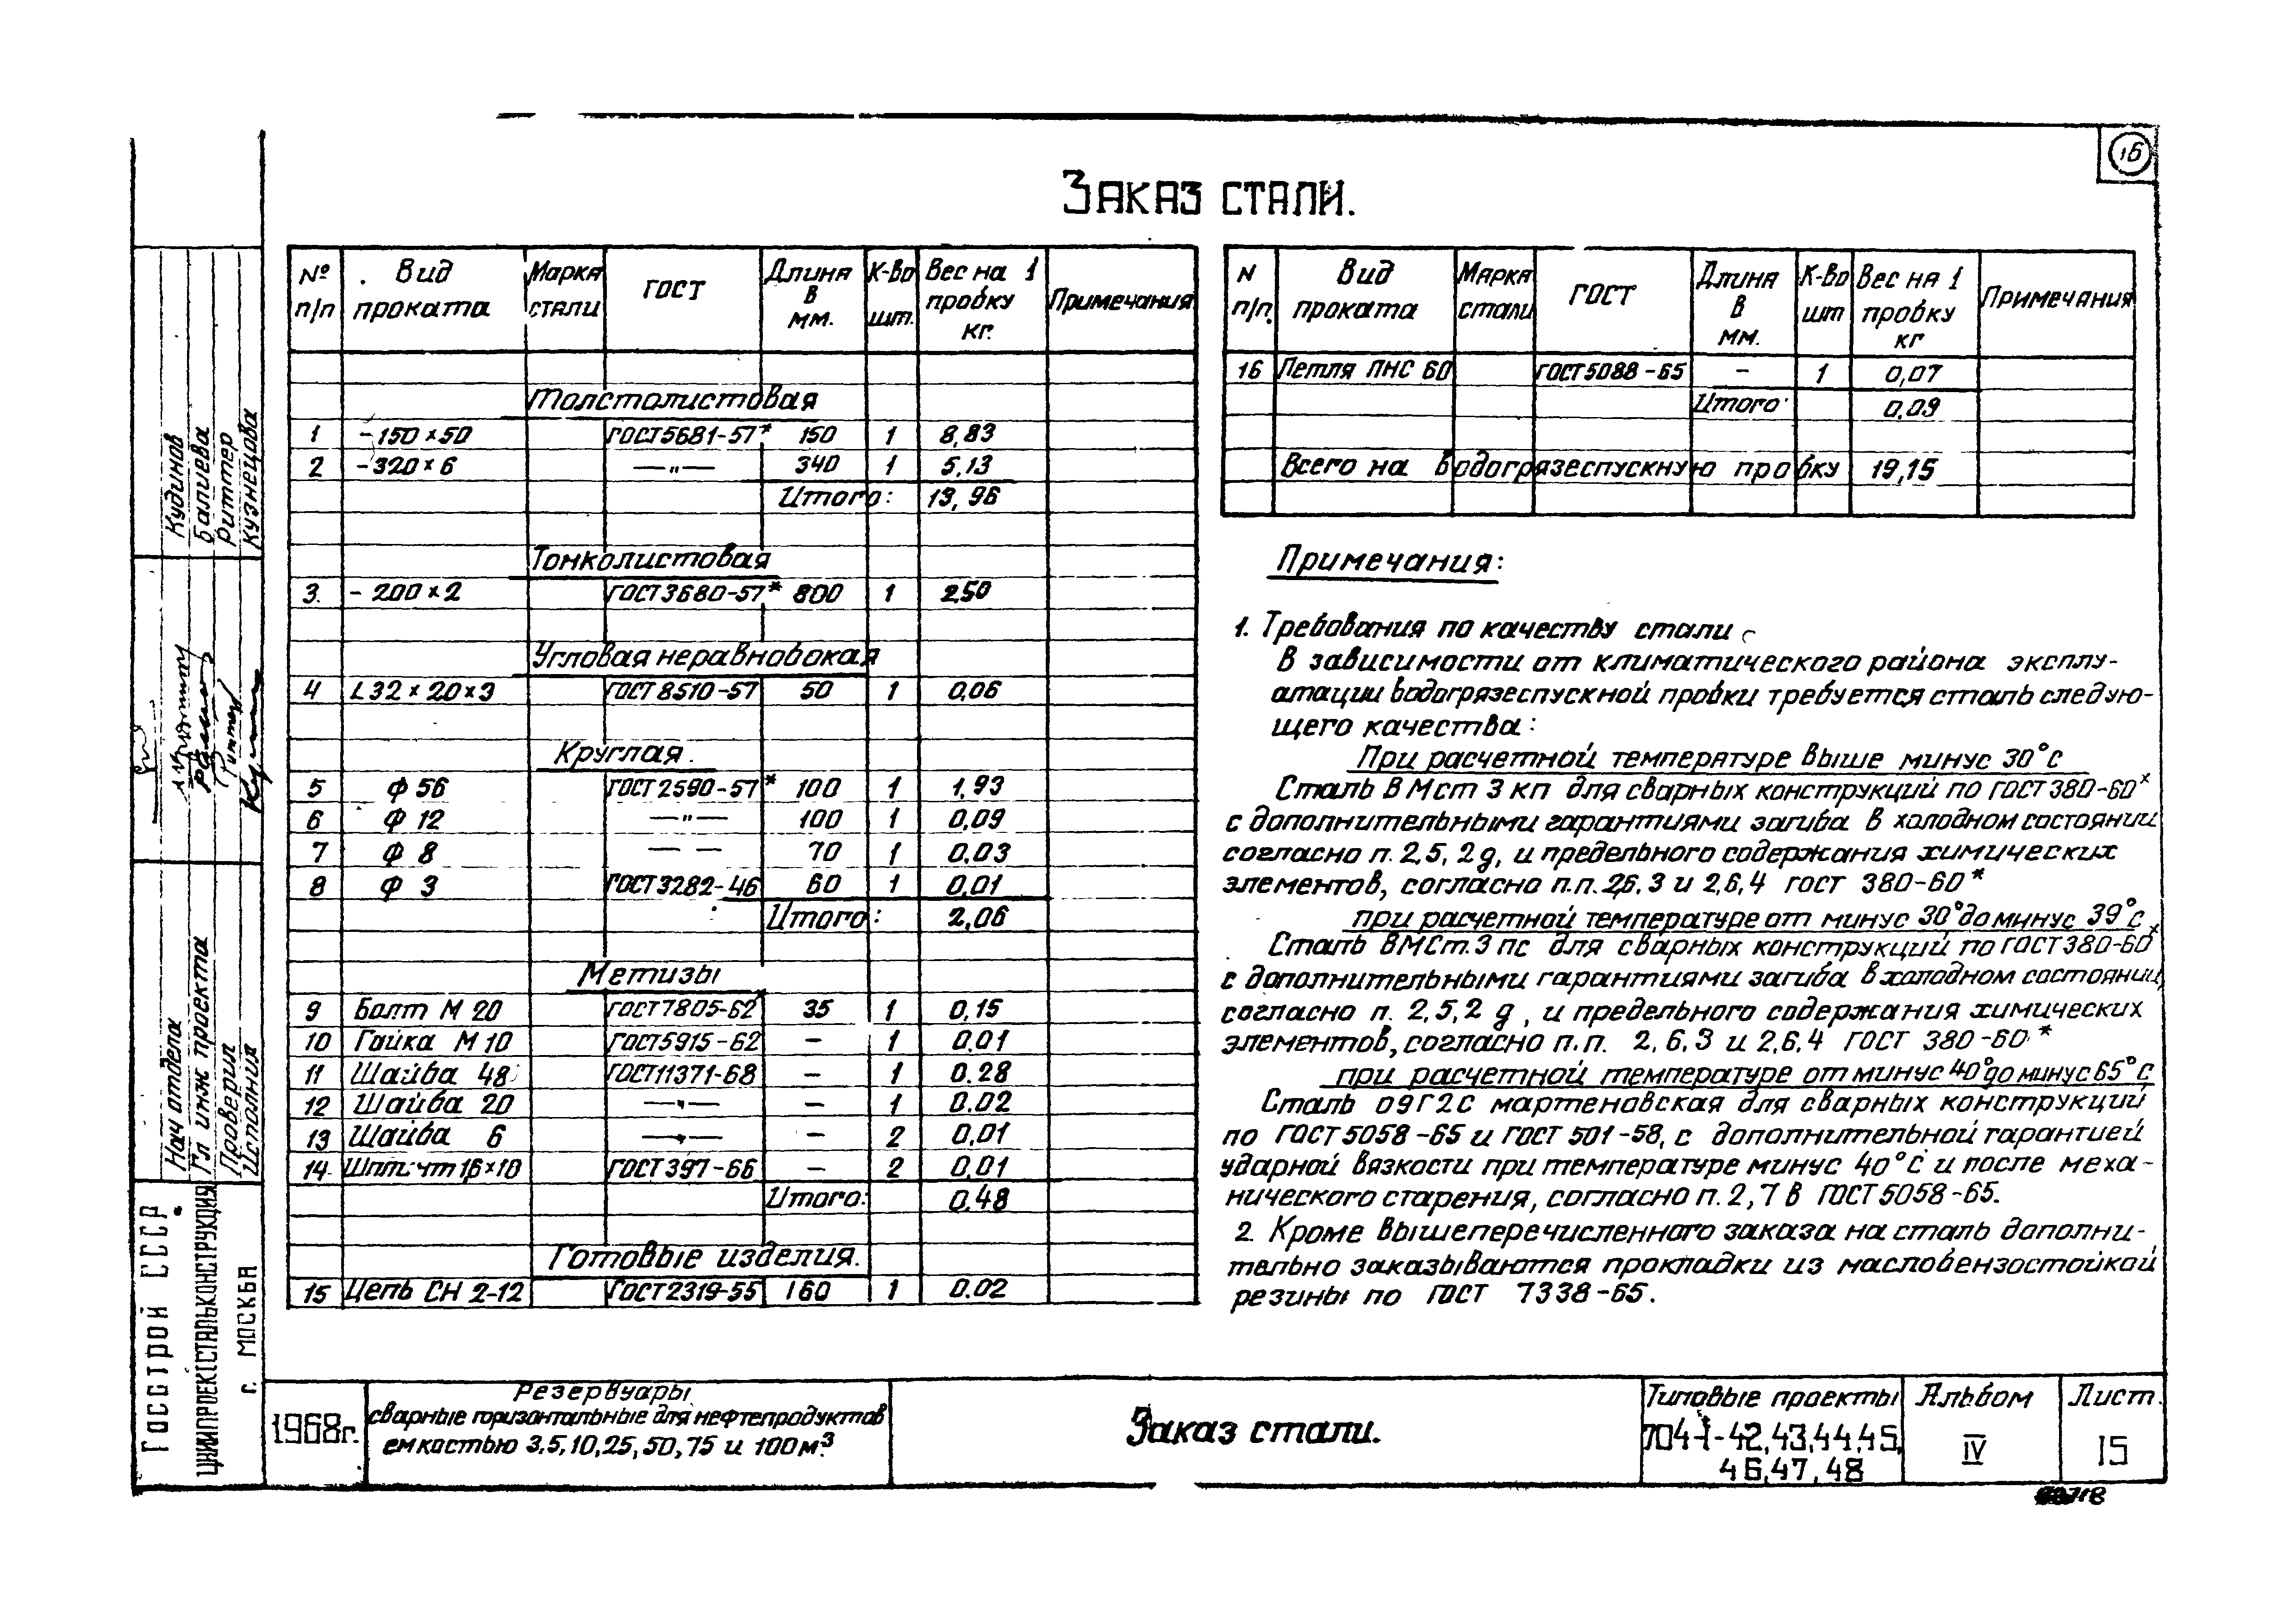 16
Заказ стали.
№ п/п Вид проката Марка стали ГОСТ Длина в мм. К-во шт. Вес на 1 пробку кг. Примечания
Толстолистовая
1 -150×50 ГОСТ5681-57* 150 1 8,83
2 -320×6 —"— 340 1 5,13
Итого: 13,96
Тонколистовая
3. -200×2 ГОСТ3680-57* 800 1 2,50
Угловая неравнобокая
4 L32×20×3 ГОСТ8510-57 50 1 0,06
Круглая.
5 Ф56 ГОСТ2590-57* 100 1 1,93
6 Ф12 —"— 100 1 0,09
7 Ф8 — — 70 1 0,03
8 Ф3 ГОСТ3282-46 60 1 0,01
Итого: 2,06
Метизы
9 Болт М20 ГОСТ7805-62* 35 1 0,15
10 Гайка М10 ГОСТ5915-62 – 1 0,01
11 Шайба 48 ГОСТ11371-68 – 1 0.28
12 Шайба 20 —"— – 1 0.02
13 Шайба 6 —"— – 2 0,01
14 Шплинт 16×10 ГОСТ397-66 – 2 0,01
Итого: 0,48
Готовые изделия.
15 Цепь СН 2-12 ГОСТ2319-55 160 1 0.02
N п/п. Вид проката Марка стали ГОСТ Длина в мм. К-во шт Вес на 1 пробку кг Примечания
16 Петля ПНС 60 ГОСТ5088-65 – 1 0,07
Итого: 0,09
Всего на водогрязеспускную пробку 19,15
Примечания:
1. Требования по качеству стали
В зависимости от климатического района эксплу-
атации водогрязеспускной пробки требуется сталь следую-
щего качества:
При расчетной температуре выше минус 30°с
Сталь ВМст 3 кп для сварных конструкций по ГОСТ380-60*
с дополнительными гарантиями загиба в холодном состоянии
согласно п. 2,5,2д, и предельного содержания химических
элементов, согласно п.п. 2,6,3 и 2,6,4 ГОСТ 380-60*
при расчетной температуре от минус 30° до минус 39°с
Сталь ВМСт.3 пс для сварных конструкций по ГОСТ380-60*
с дополнительными гарантиями загиба в холодном состоянии,
согласно п. 2,5,2 д, и предельного содержания химических
элементов, согласно п.п. 2,6,3 и 2,6,4 ГОСТ 380-60*
при расчетной температуре от минус 40° до минус 65°с
Сталь 09Г2С мартеновская для сварных конструкций
по ГОСТ5058-65 и ГОСТ 501-58, с дополнительной гарантией
ударной вязкости при температуре минус 40°с и после меха-
нического старения, согласно п. 2,7 в ГОСТ5058-65.
2. Кроме вышеперечисленного заказа на сталь дополни-
тельно заказываются прокладки из маслобензостойкой
резины по ГОСТ 7338-65.
Госстрой СССР
ЦНИИПРОЕКТСТАЛЬКОНСТРУКЦИЯ
г. МОСКВА
Нач отдела Кудинов
Гл инж проекта Балиева
Проверил Риттер
Исполнил Кузнецова
1968г.
Резервуары
сварные горизонтальные для нефтепродуктов
емкостью 3,5,10,25,50,75 и 100м³
Заказ стали.
Типовые проекты
704-1-42,43,44,45,
46,47,48
Альбом
IV
Лист.
15